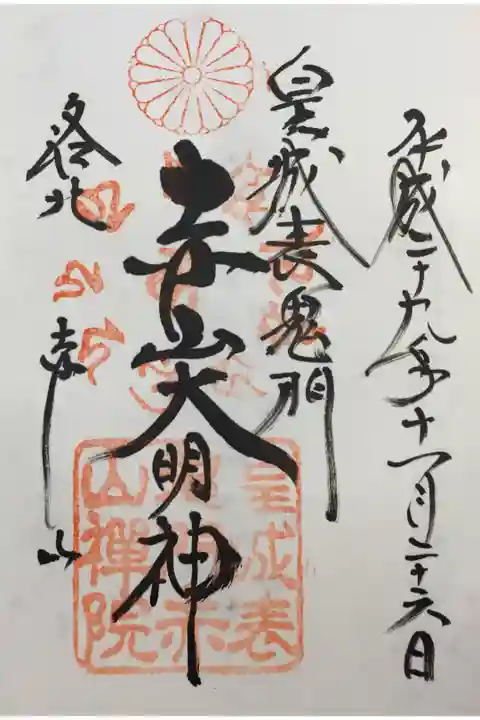 平成二十九年十一月二十六日
皇城表鬼門
赤山大明神
洛北
赤山
皇城表
鬼門赤
山禅院